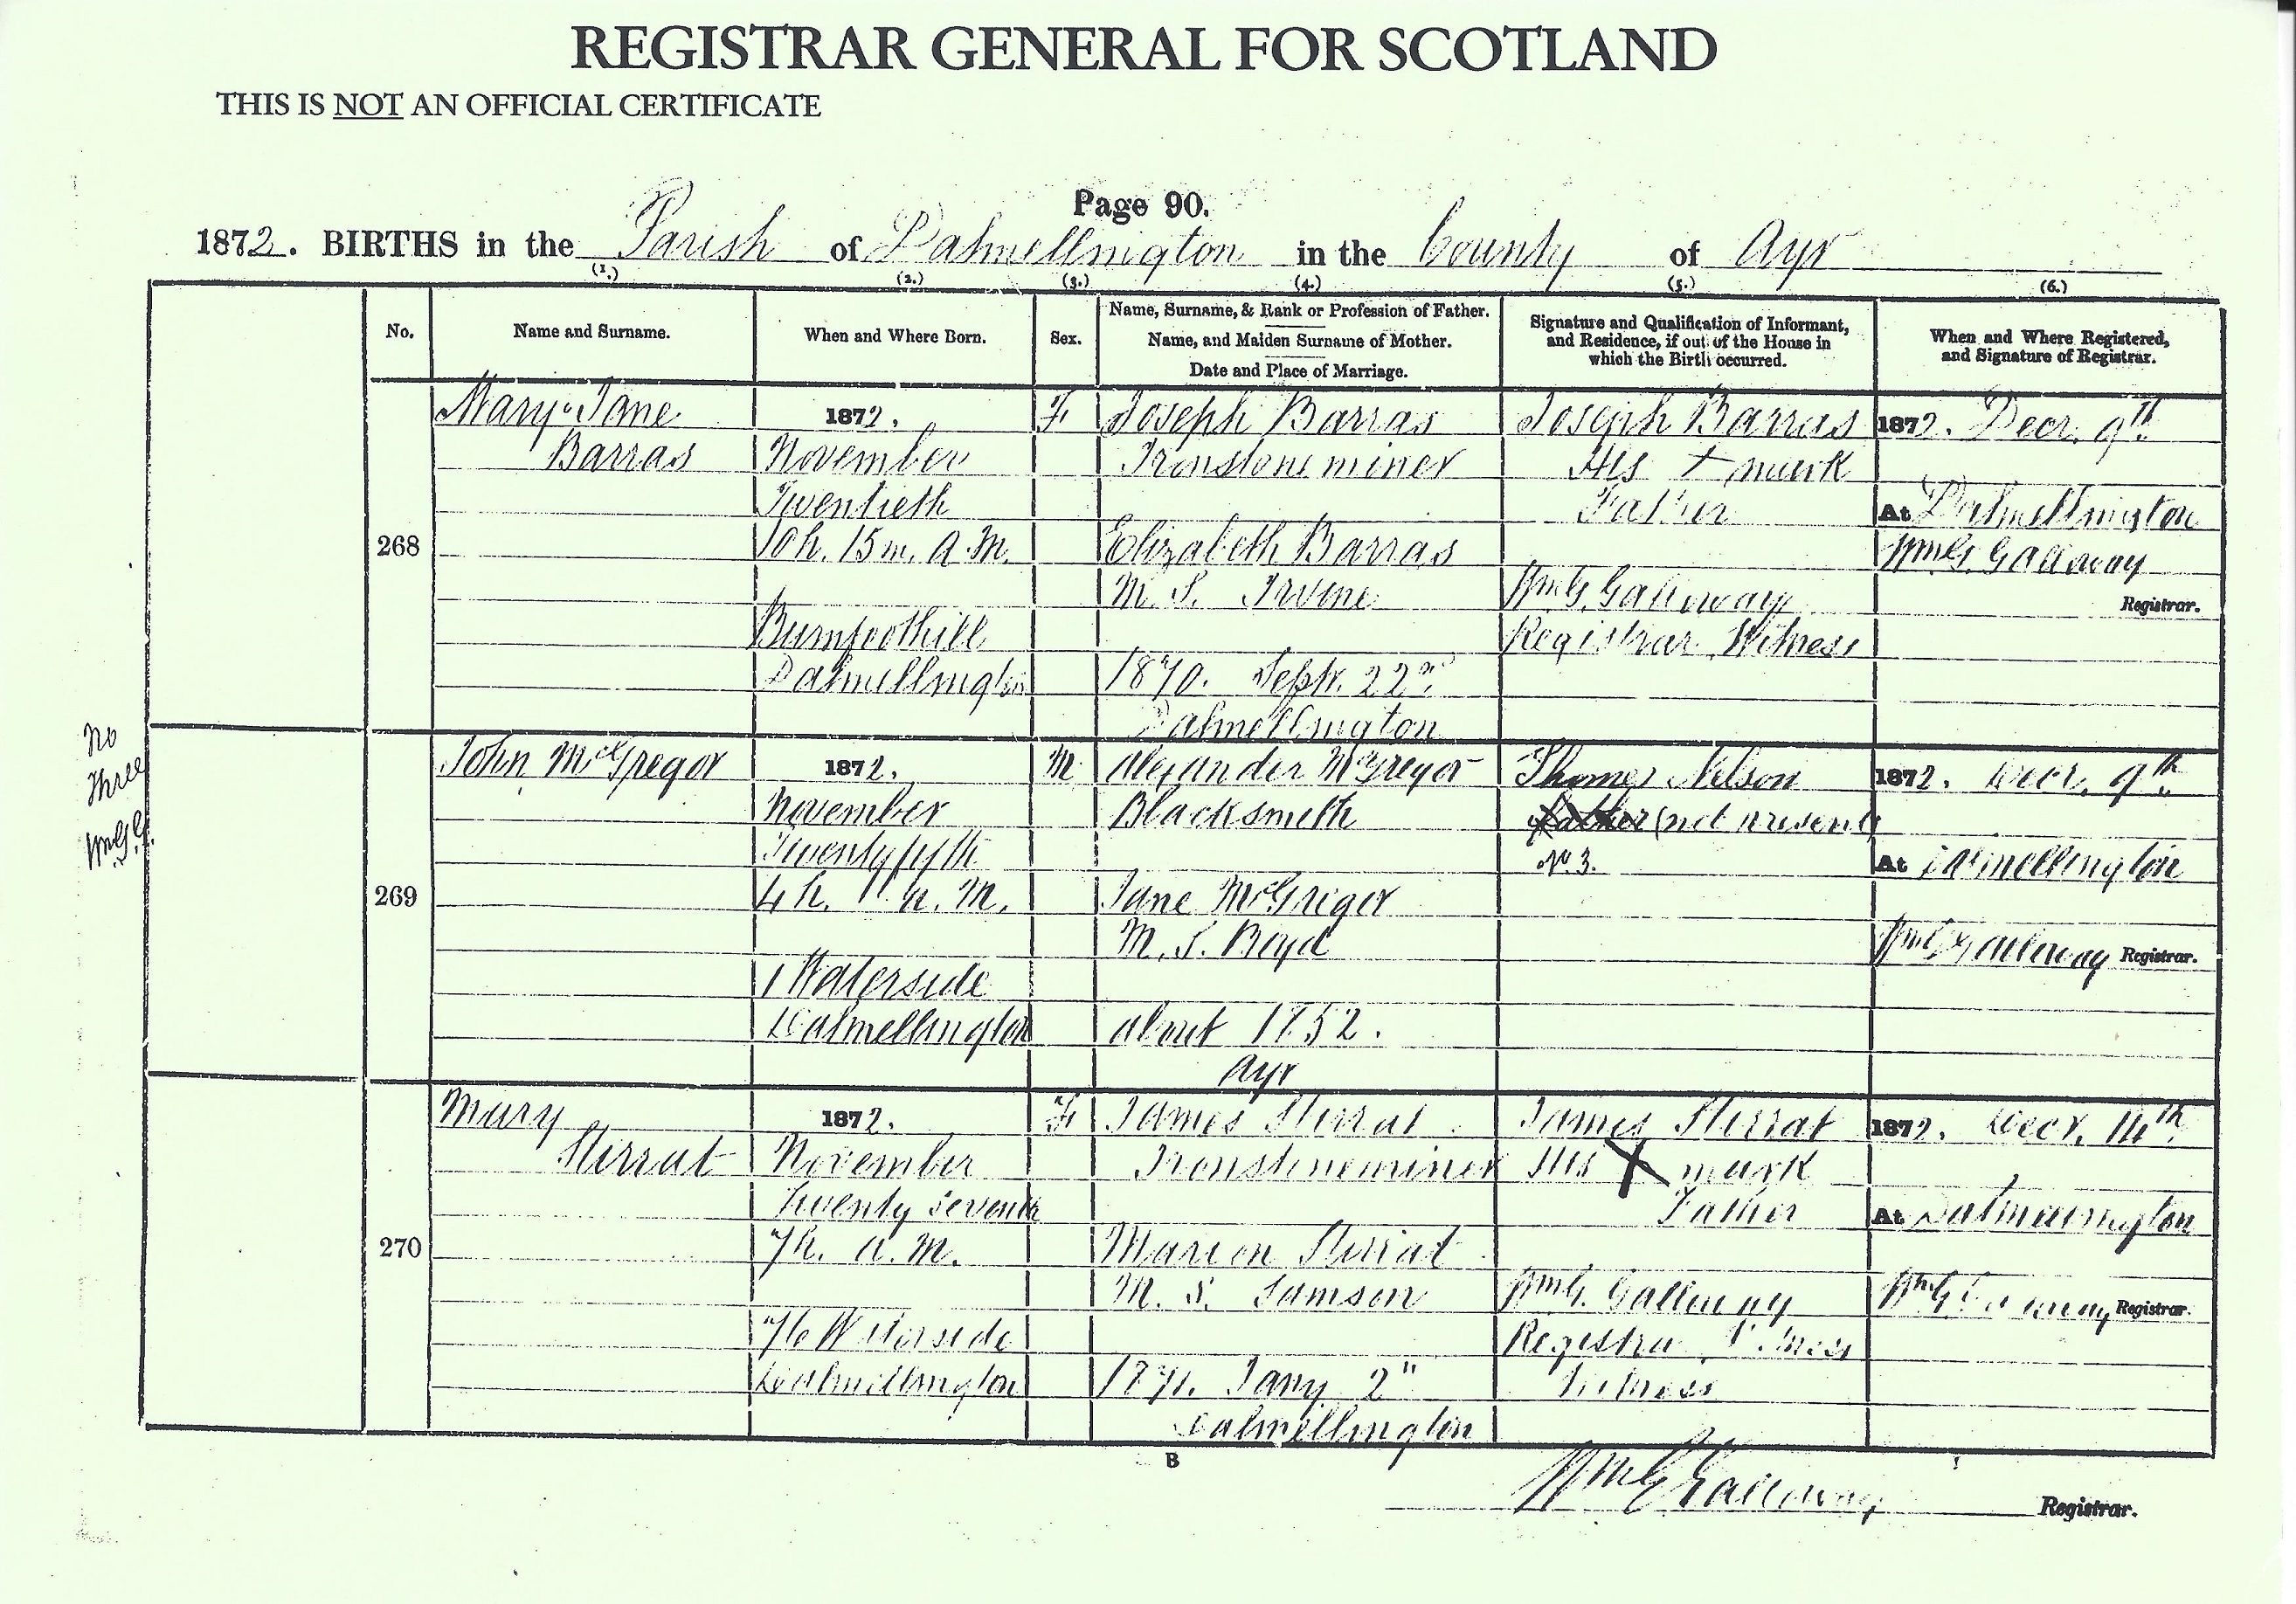 REGISTRAR GENERAL FOR SCOTLAND
THIS IS NOT AN OFFICIAL CERTIFICATE
Page 90.
1872. BIRTHS in the Parish of Dalmellington in the County of Ayr
(1.) (2.) (3.) (4.) (5.) (6.)
No.
Name and Surname.
When and Where Born.
Sex.
Name, Surname, & Rank or Profession of Father.
Name, and Maiden Surname of Mother.
Date and Place of Marriage.
Signature and Qualification of Informant,
and Residence, if out of the House in
which the Birth occurred.
When and Where Registered,
and Signature of Registrar.
268
Mary Jane
Barras
1872.
November
Twentieth
10h. 15m. A.M.
Burnfoothill
Dalmellington
F
Joseph Barras
Ironstone miner
Elizabeth Barras
M. S. Irvine
1870. Sepr. 22nd
Dalmellington
Joseph Barras
His + mark
Father
Wm G. Galloway
Registrar, Witness
1872. Decr. 9th
At Dalmellington
Wm G. Galloway
Registrar.
No
Three
Wm G. G.
269
John McGregor
1872.
November
Twenty fifth
4h. A.M.
1 Waterside
Dalmellington
M
Alexander McGregor
Blacksmith
Jane McGregor
M. S. Boyd
about 1852.
Ayr
Thomas Nelson
Father (not present)
No. 3.
1872. Decr. 9th
At Dalmellington
Wm G. Galloway Registrar.
270
Mary
Stirrat
1872.
November
Twenty seventh
7h. A.M.
76 Waterside
Dalmellington
F
James Stirrat
Ironstoneminer
Marion Stirrat
M. S. Samson
1871. Jany 2"
Dalmellington
James Stirrat
His X mark
Father
Wm G. Galloway
Registrar, Witness
Witness
1872. Decr. 14th
At Dalmellington
Wm G. Galloway Registrar.
B
Wm G Galloway Registrar.